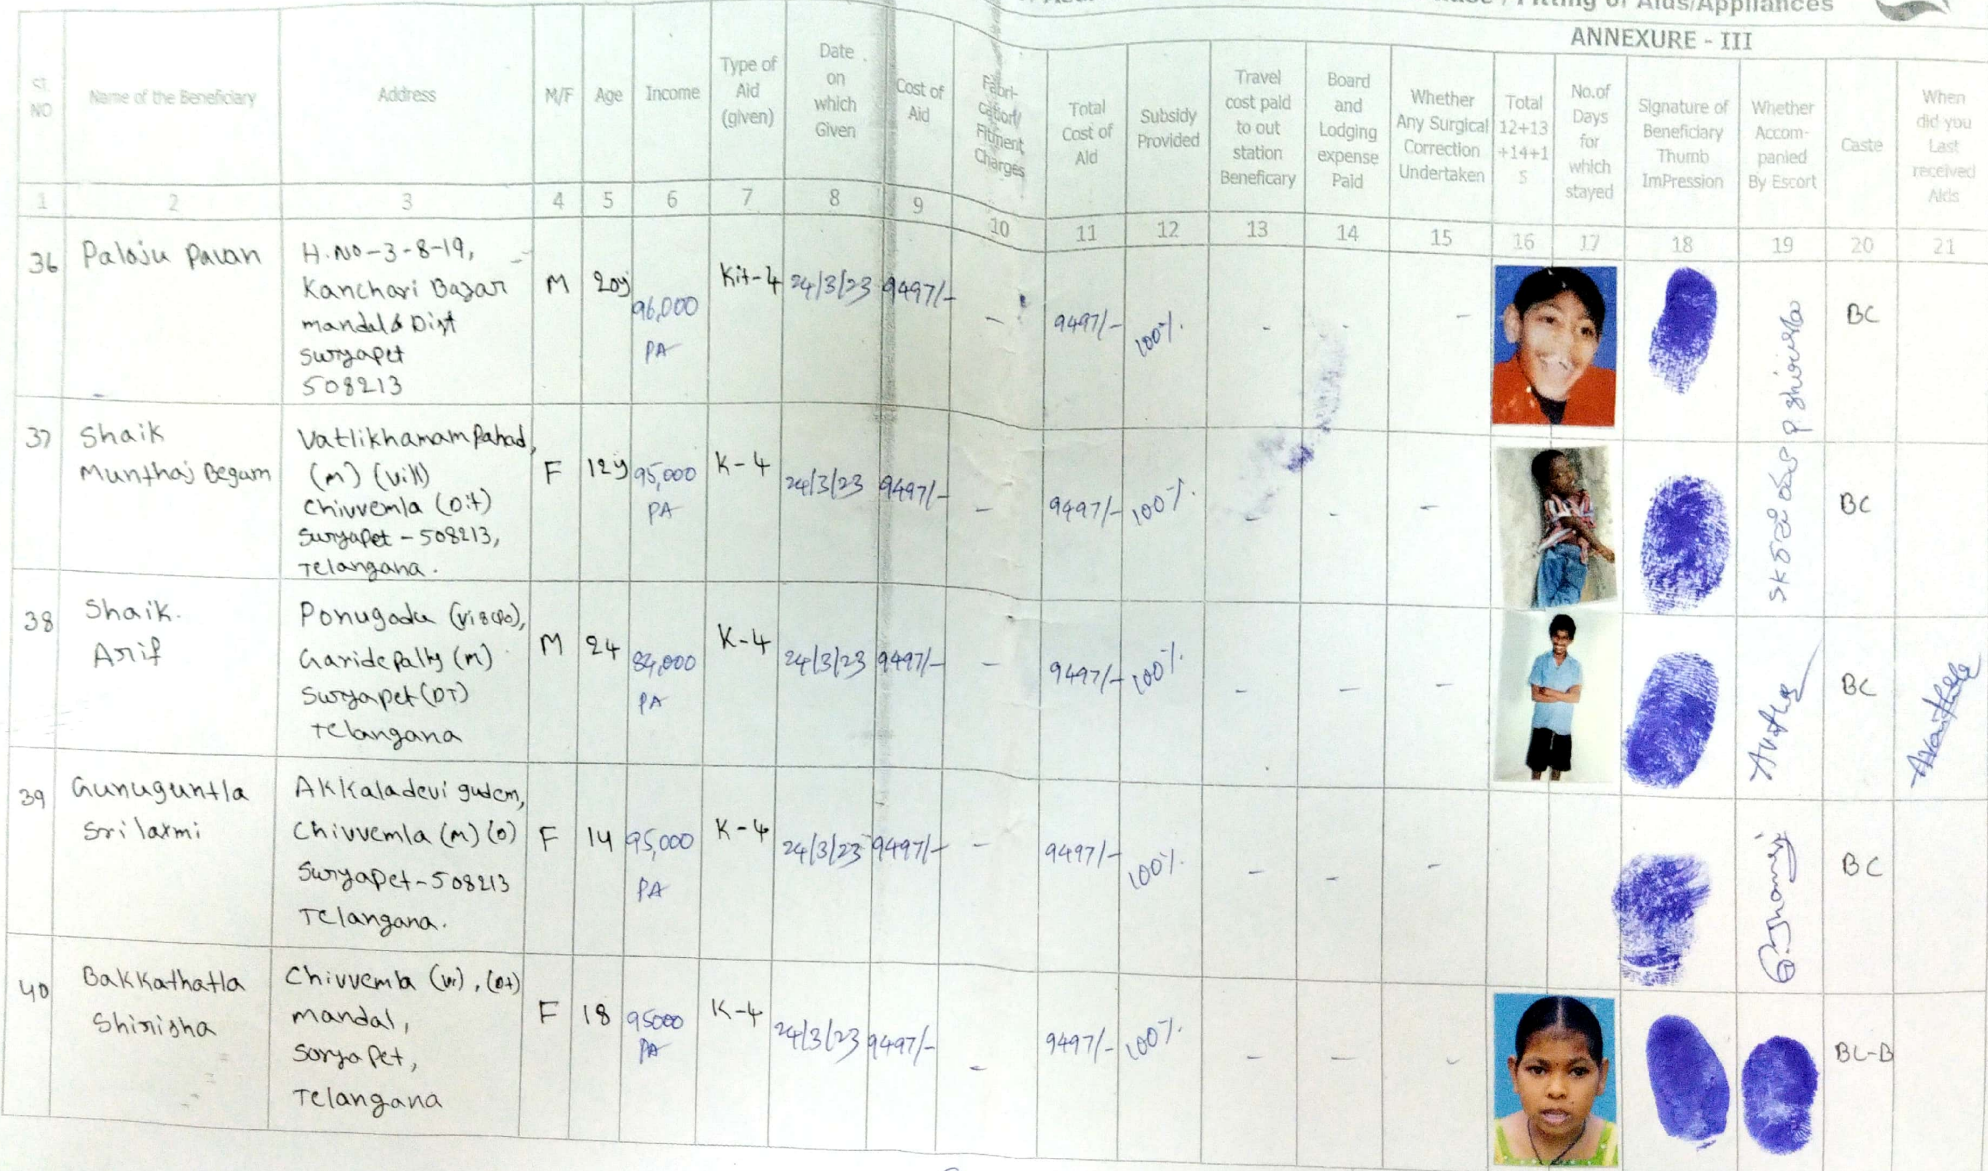 Fitting of Aids/Appliances
ANNEXURE - III
Sl. NO
Name of the Beneficiary
Address
M/F
Age
Income
Type of
Aid
(given)
Date
on
which
Given
Cost of
Aid
Fabri-
cation/
Fitment
Charges
Total
Cost of
Aid
Subsidy
Provided
Travel
cost paid
to out
station
Beneficary
Board
and
Lodging
expense
Paid
Whether
Any Surgical
Correction
Undertaken
Total
12+13
+14+1
5
No.of
Days
for
which
stayed
Signature of
Beneficiary
Thumb
ImPression
Whether
Accom-
panied
By Escort
Caste
When
did you
Last
received
Aids
1 2 3 4 5 6 7 8 9 10 11 12 13 14 15 16 17 18 19 20 21
36
Paloju Pavan
H.No-3-8-19,
Kanchari Bazar
mandal & Dist
Suryapet
508213
M
20y
96,000
PA
Kit-4
24/3/23
9497/-
-
9497/-
100%.
-
-
-
BC
37
Shaik
Munthaj Begam
Vatlikhamam Pahad,
(m) (vill)
Chivvemla (Dit)
Suryapet - 508213,
Telangana.
F
12y
95,000
PA
K-4
24/3/23
9497/-
-
9497/-
100%.
-
-
-
BC
38
Shaik.
Arif
Ponugodu
Garidepally (m)
Suryapet (DT)
Telangana
M
24
84,000
PA
K-4
24/3/23
9497/-
-
9497/-
100%.
-
-
-
BC
39
Gunuguntla
Sri laxmi
Akkaladevi gudem,
Chivvemla (m) (D)
Suryapet-508213
Telangana.
F
14
95,000
PA
K-4
24/3/23
9497/-
-
9497/-
100%.
-
-
-
BC
40
Bakkathatla
Shirisha
Chivvemla (vi), (Dt)
mandal,
Soryapet,
Telangana
F
18
95000
PA
K-4
24/3/23
9497/-
-
9497/-
100%.
-
-
-
BC-B